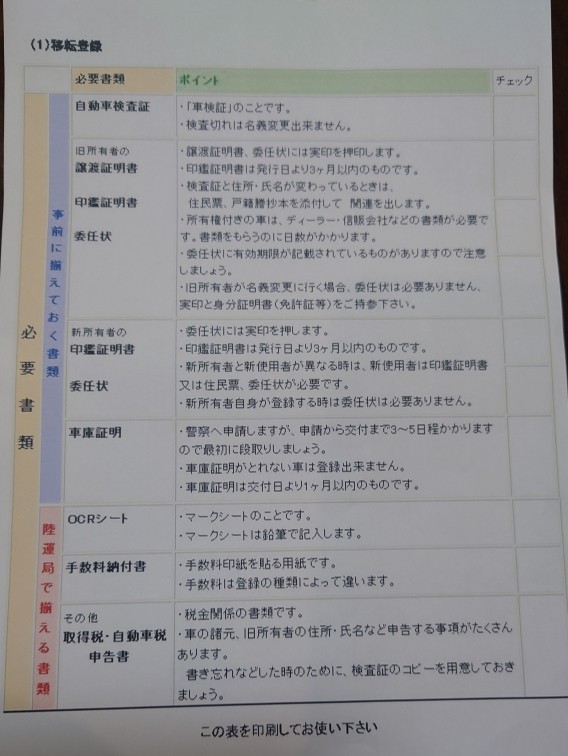 (1)移転登録
必要書類
ポイント
チェック
必要書類
事前に揃えておく書類
自動車検査証
・「車検証」のことです。
・検査切れは名義変更出来ません。
旧所有者の
譲渡証明書
印鑑証明書
委任状
・譲渡証明書、委任状には実印を押印します。
・印鑑証明書は発行日より3ヶ月以内のものです。
・検査証と住所・氏名が変わっているときは、
住民票、戸籍謄抄本を添付して 関連を出します。
・所有権付きの車は、ディーラー・信販会社などの書類が必要で
す。書類をもらうのに日数がかかります。
・委任状に有効期限が記載されているものがありますので注意
しましょう。
・旧所有者が名義変更に行く場合、委任状は必要ありません、
実印と身分証明書(免許証等)をご持参下さい。
新所有者の
印鑑証明書
委任状
・委任状には実印を押します。
・印鑑証明書は発行日より3ヶ月以内のものです。
・新所有者と新使用者が異なる時は、新使用者は印鑑証明書
又は住民票、委任状が必要です。
・新所有者自身が登録する時は委任状は必要ありません。
車庫証明
・警察へ申請しますが、申請から交付まで3～5日程かかります
ので最初に段取りしましょう。
・車庫証明がとれない車は登録出来ません。
・車庫証明は交付日より1ヶ月以内のものです。
陸運局で揃える書類
OCRシート
・マークシートのことです。
・マークシートは鉛筆で記入します。
手数料納付書
・手数料印紙を貼る用紙です。
・手数料は登録の種類によって違います。
その他
取得税・自動車税
申告書
・税金関係の書類です。
・車の諸元、旧所有者の住所・氏名など申告する事項がたくさん
あります。
書き忘れなどした時のために、検査証のコピーを用意しておき
ましょう。
この表を印刷してお使い下さい